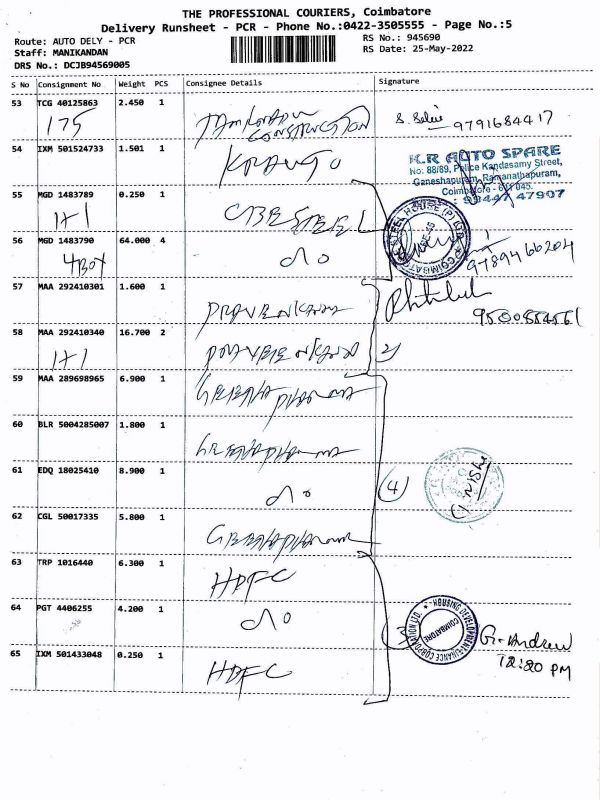 THE PROFESSIONAL COURIERS, Coimbatore
Delivery Runsheet - PCR - Phone No.:0422-3505555 - Page No.:5
Route: AUTO DELY - PCR
RS No.: 945690
Staff: MANIKANDAN
RS Date: 25-May-2022
DRS No.: DCJB94569005
S No Consignment No Weight PCS Consignee Details Signature
53 TCG 40125863 2.450 1
175 CONSTRUCTION 9791684417
54 IXM 501524733 1.501 1
K.R AUTO SPARE
No: 88/89, Police Kandasamy Street,
Ganeshapuram, Ramanathapuram,
Coimbatore - 641 045.
55 MGD 1483789 0.250 1
: 99447 47907
1+1 CBE STEEL
56 MGD 1483790 64.000 4
4 Box 9789466204
57 MAA 292410301 1.600 1
58 MAA 292410340 16.700 2
1+1 2)
59 MAA 289698965 6.900 1
60 BLR 5004285007 1.800 1
61 EDQ 18025410 8.900 1
(4)
62 CGL 50017335 5.800 1
63 TRP 1016440 6.300 1
HDFC
64 PGT 4406255 4.200 1
HOUSING DEVELOPMENT FINANCE CORPORATION LTD.
COIMBATORE
G. Andrew
12:20 PM
65 IXM 501433048 0.250 1
HDFC